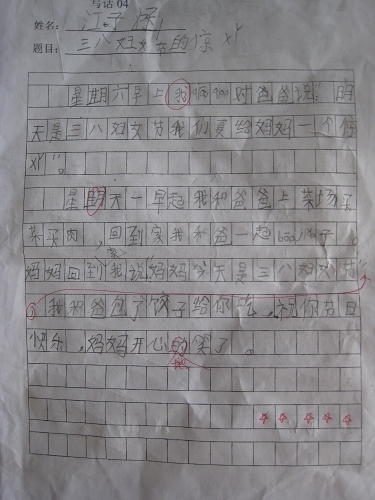 写话 04
姓名: 江子
题目: 三八妇女节的惊xǐ
星期六早上我 qiāo qiāo 对爸爸说:"明
天是三八妇女节我们要给妈妈一个惊
xǐ"。
星期天一早起我和爸爸上菜场买
菜买肉,回到家我和爸一起bāo jiǎo子。
妈妈回到家我说"妈妈今天是三八妇女节
我和爸包了饺子给你吃,祝你节日
快乐,妈妈开心的笑了。
地